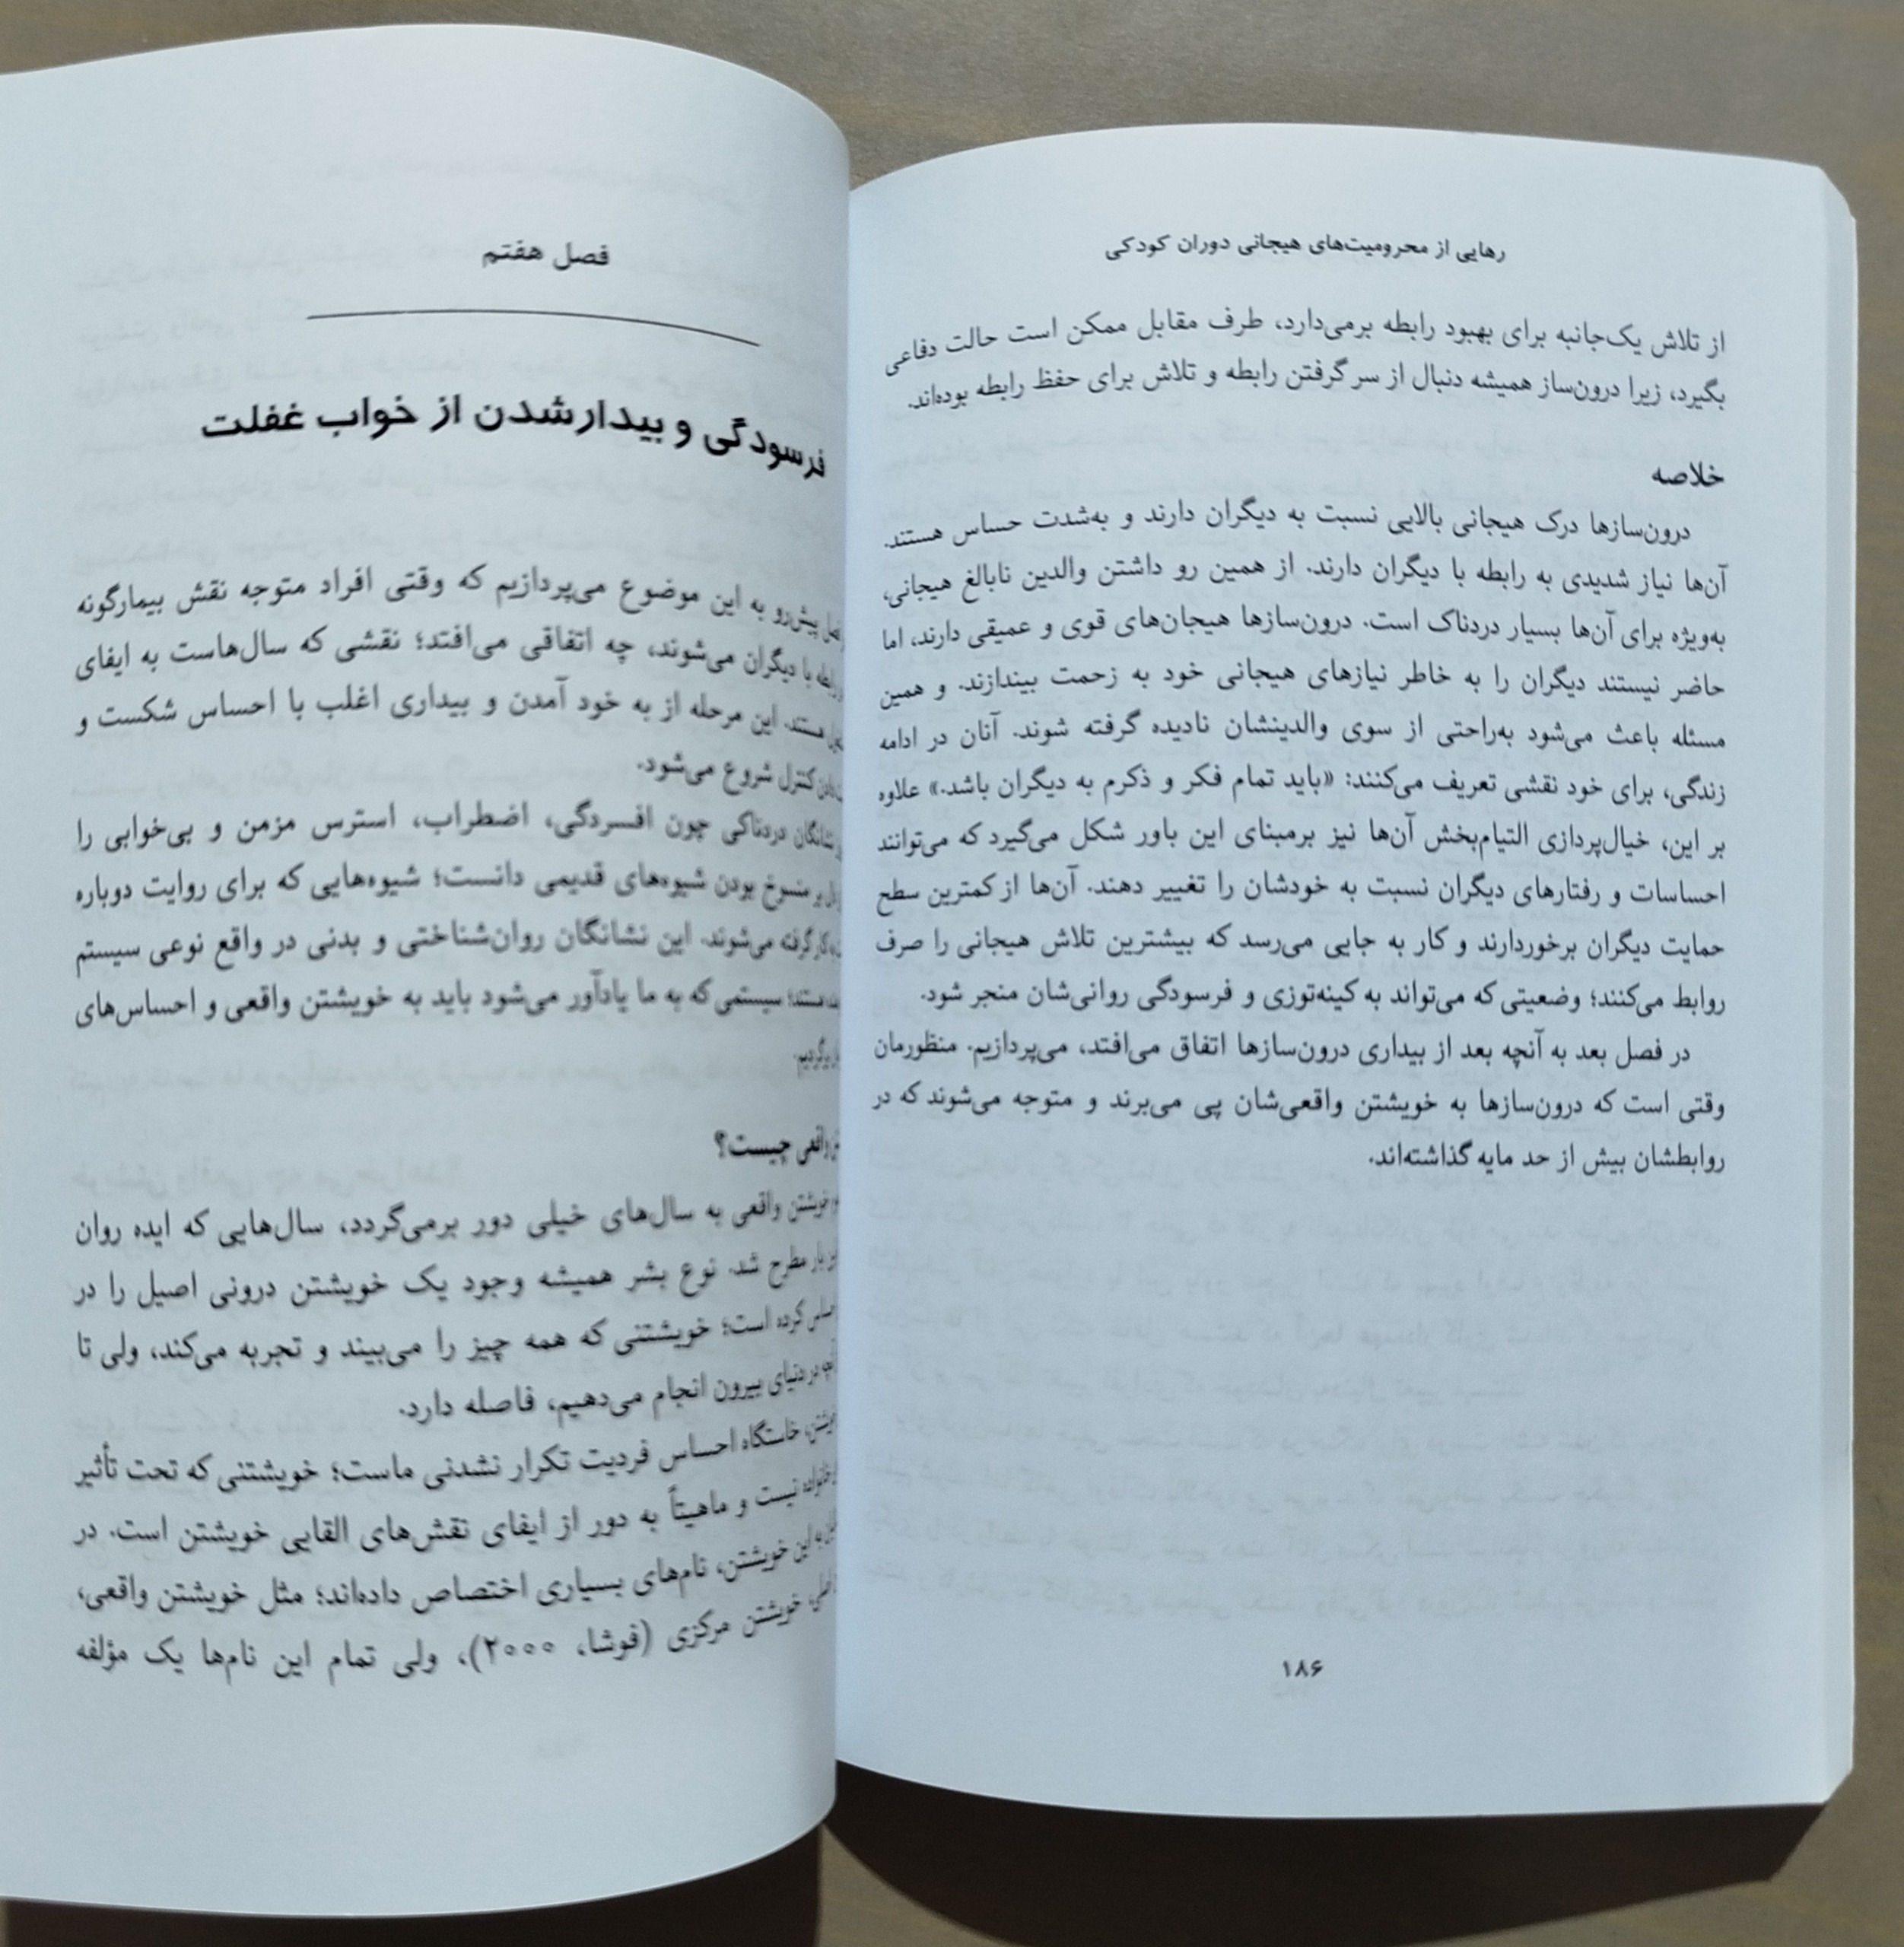 رهایی از محرومیت‌های هیجانی دوران کودکی
از تلاش یک‌جانبه برای بهبود رابطه برمی‌دارد، طرف مقابل ممکن است حالت دفاعی
بگیرد، زیرا درون‌ساز همیشه دنبال از سر گرفتن رابطه و تلاش برای حفظ رابطه بوده‌اند.
خلاصه
درون‌سازها درک هیجانی بالایی نسبت به دیگران دارند و به‌شدت حساس هستند.
آن‌ها نیاز شدیدی به رابطه با دیگران دارند. از همین رو داشتن والدین نابالغ هیجانی،
به‌ویژه برای آن‌ها بسیار دردناک است. درون‌سازها هیجان‌های قوی و عمیقی دارند، اما
حاضر نیستند دیگران را به خاطر نیازهای هیجانی خود به زحمت بیندازند. و همین
مسئله باعث می‌شود به‌راحتی از سوی والدینشان نادیده گرفته شوند. آنان در ادامه
زندگی، برای خود نقشی تعریف می‌کنند: «باید تمام فکر و ذکرم به دیگران باشد.» علاوه
بر این، خیال‌پردازی التیام‌بخش آن‌ها نیز برمبنای این باور شکل می‌گیرد که می‌توانند
احساسات و رفتارهای دیگران نسبت به خودشان را تغییر دهند. آن‌ها از کمترین سطح
حمایت دیگران برخوردارند و کار به جایی می‌رسد که بیشترین تلاش هیجانی را صرف
روابط می‌کنند؛ وضعیتی که می‌تواند به کینه‌توزی و فرسودگی روانی‌شان منجر شود.
در فصل بعد به آنچه بعد از بیداری درون‌سازها اتفاق می‌افتد، می‌پردازیم. منظورمان
وقتی است که درون‌سازها به خویشتن واقعی‌شان پی می‌برند و متوجه می‌شوند که در
روابطشان بیش از حد مایه گذاشته‌اند.
۱۸۶
فصل هفتم
فرسودگی و بیدارشدن از خواب غفلت
پیش‌رو به این موضوع می‌پردازیم که وقتی افراد متوجه نقش بیمارگونه
رابطه با دیگران می‌شوند، چه اتفاقی می‌افتد؛ نقشی که سال‌هاست به ایفای
هستند. این مرحله از به خود آمدن و بیداری اغلب با احساس شکست و
کنترل شروع می‌شود.
نشانگان دردناکی چون افسردگی، اضطراب، استرس مزمن و بی‌خوابی را
بر منسوخ بودن شیوه‌های قدیمی دانست؛ شیوه‌هایی که برای روایت دوباره
کار گرفته می‌شوند. این نشانگان روان‌شناختی و بدنی در واقع نوعی سیستم
هستند؛ سیستمی که به ما یادآور می‌شود باید به خویشتن واقعی و احساس‌های
برگردیم.
واقعی چیست؟
خویشتن واقعی به سال‌های خیلی دور برمی‌گردد، سال‌هایی که ایده روان
بار مطرح شد. نوع بشر همیشه وجود یک خویشتن درونی اصیل را در
کرده است؛ خویشتنی که همه چیز را می‌بیند و تجربه می‌کند، ولی تا
در دنیای بیرون انجام می‌دهیم، فاصله دارد.
خاستگاه احساس فردیت تکرار نشدنی ماست؛ خویشتنی که تحت تأثیر
خانواده نیست و ماهیتاً به دور از ایفای نقش‌های القایی خویشتن است. در
به این خویشتن، نام‌های بسیاری اختصاص داده‌اند؛ مثل خویشتن واقعی،
خویشتن مرکزی (فوشا، ۲۰۰۰)، ولی تمام این نام‌ها یک مؤلفه